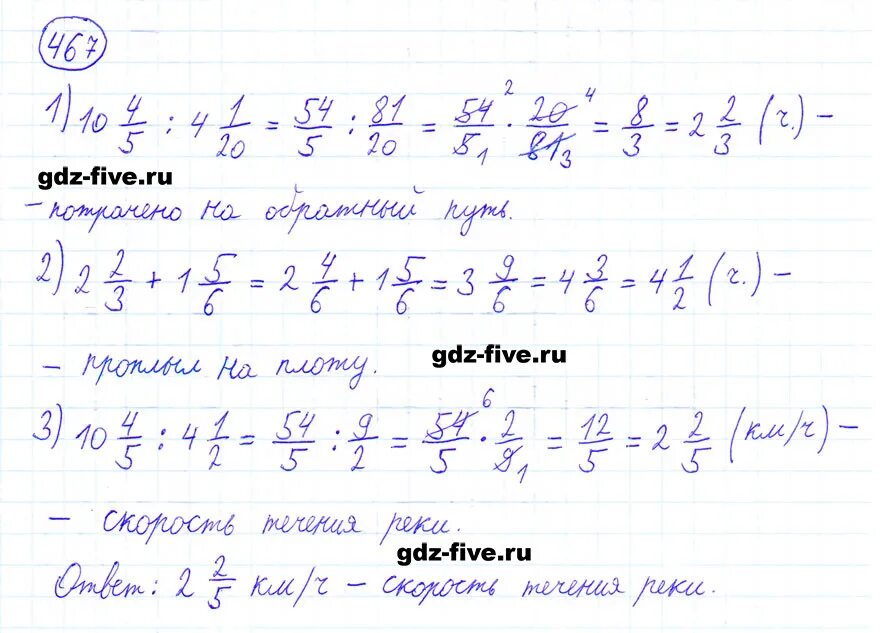 467
1) 10 4/5 : 4 1/20 = 54/5 : 81/20 = 54/5 1 · 2 20 4/81 3 = 8/3 = 2 2/3 (ч.) –
gdz-five.ru
– потрачено на обратный путь.
2) 2 2/3 + 1 5/6 = 2 4/6 + 1 5/6 = 3 9/6 = 4 3/6 = 4 1/2 (ч.) –
– проплыл на плоту.
gdz-five.ru
3) 10 4/5 : 4 1/2 = 54/5 : 9/2 = 54 6/5 · 2/9 1 = 12/5 = 2 2/5 (км/ч) –
– скорость течения реки.
gdz-five.ru
Ответ: 2 2/5 км/ч – скорость течения реки.